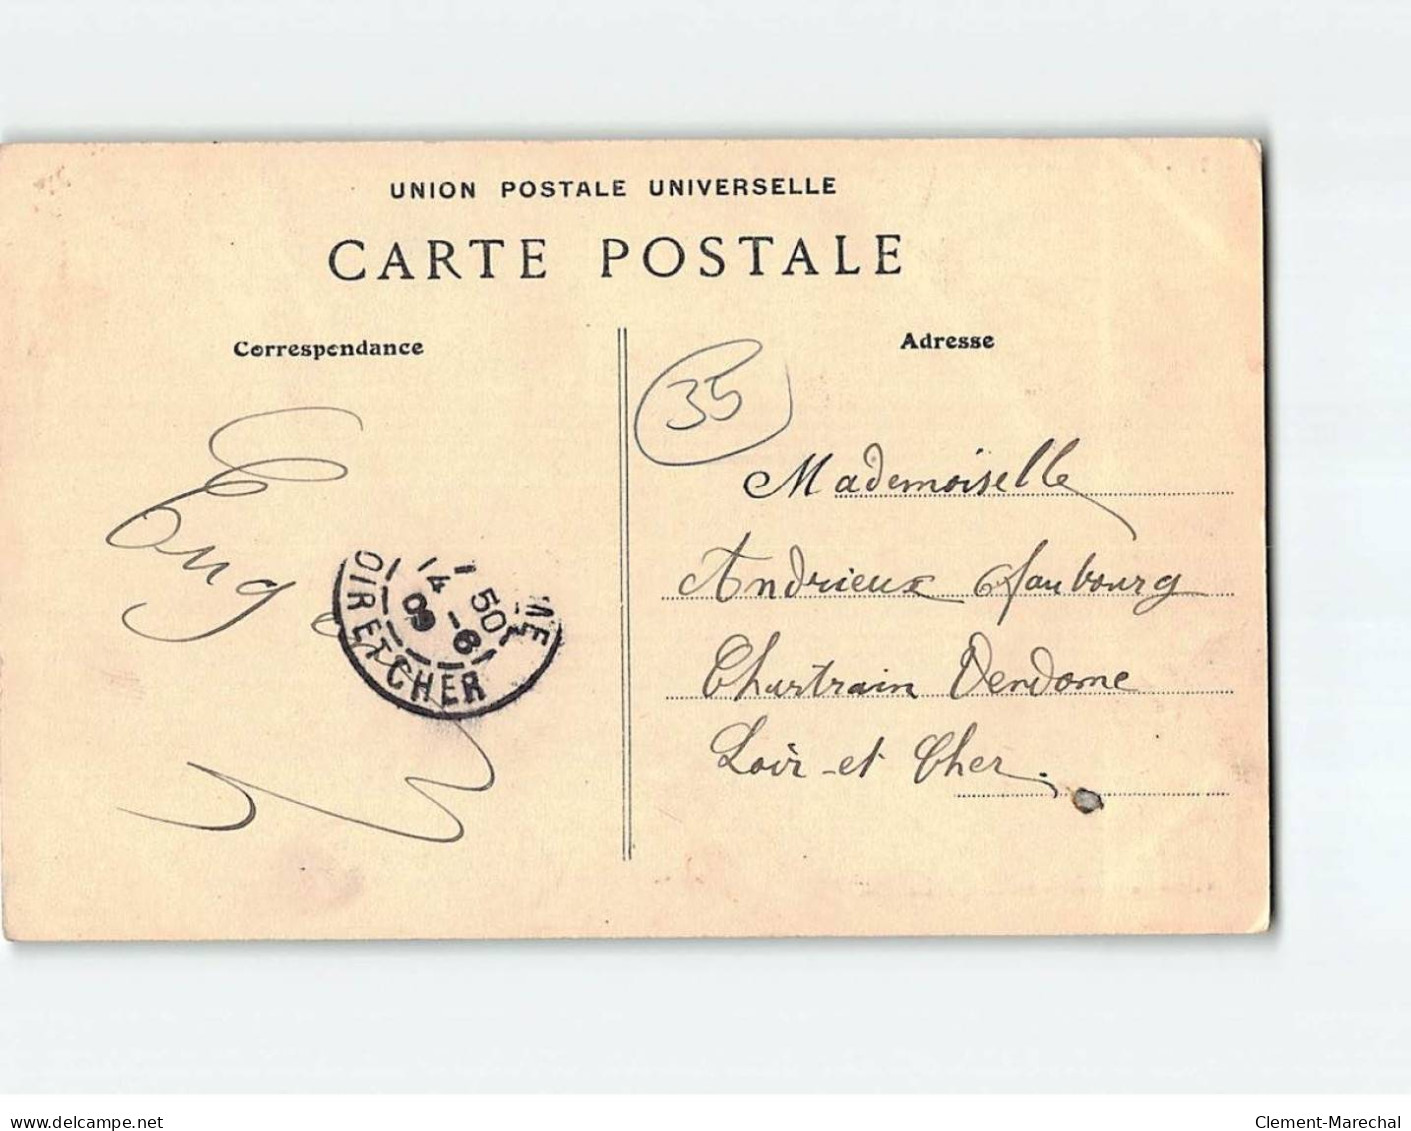 UNION POSTALE UNIVERSELLE
CARTE POSTALE
Correspondance
Adresse
35
Mademoiselle
Andrieux Faubourg
Chartrain Vendome
Loir-et Cher.
Eug
1 50
14 -6
09
OIR ET CHER
delcampe.net
Clement-Marechal